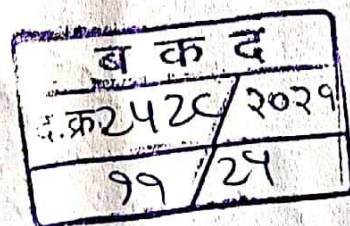 ब क द
द.क्र २५२८/२०२१
११/२५